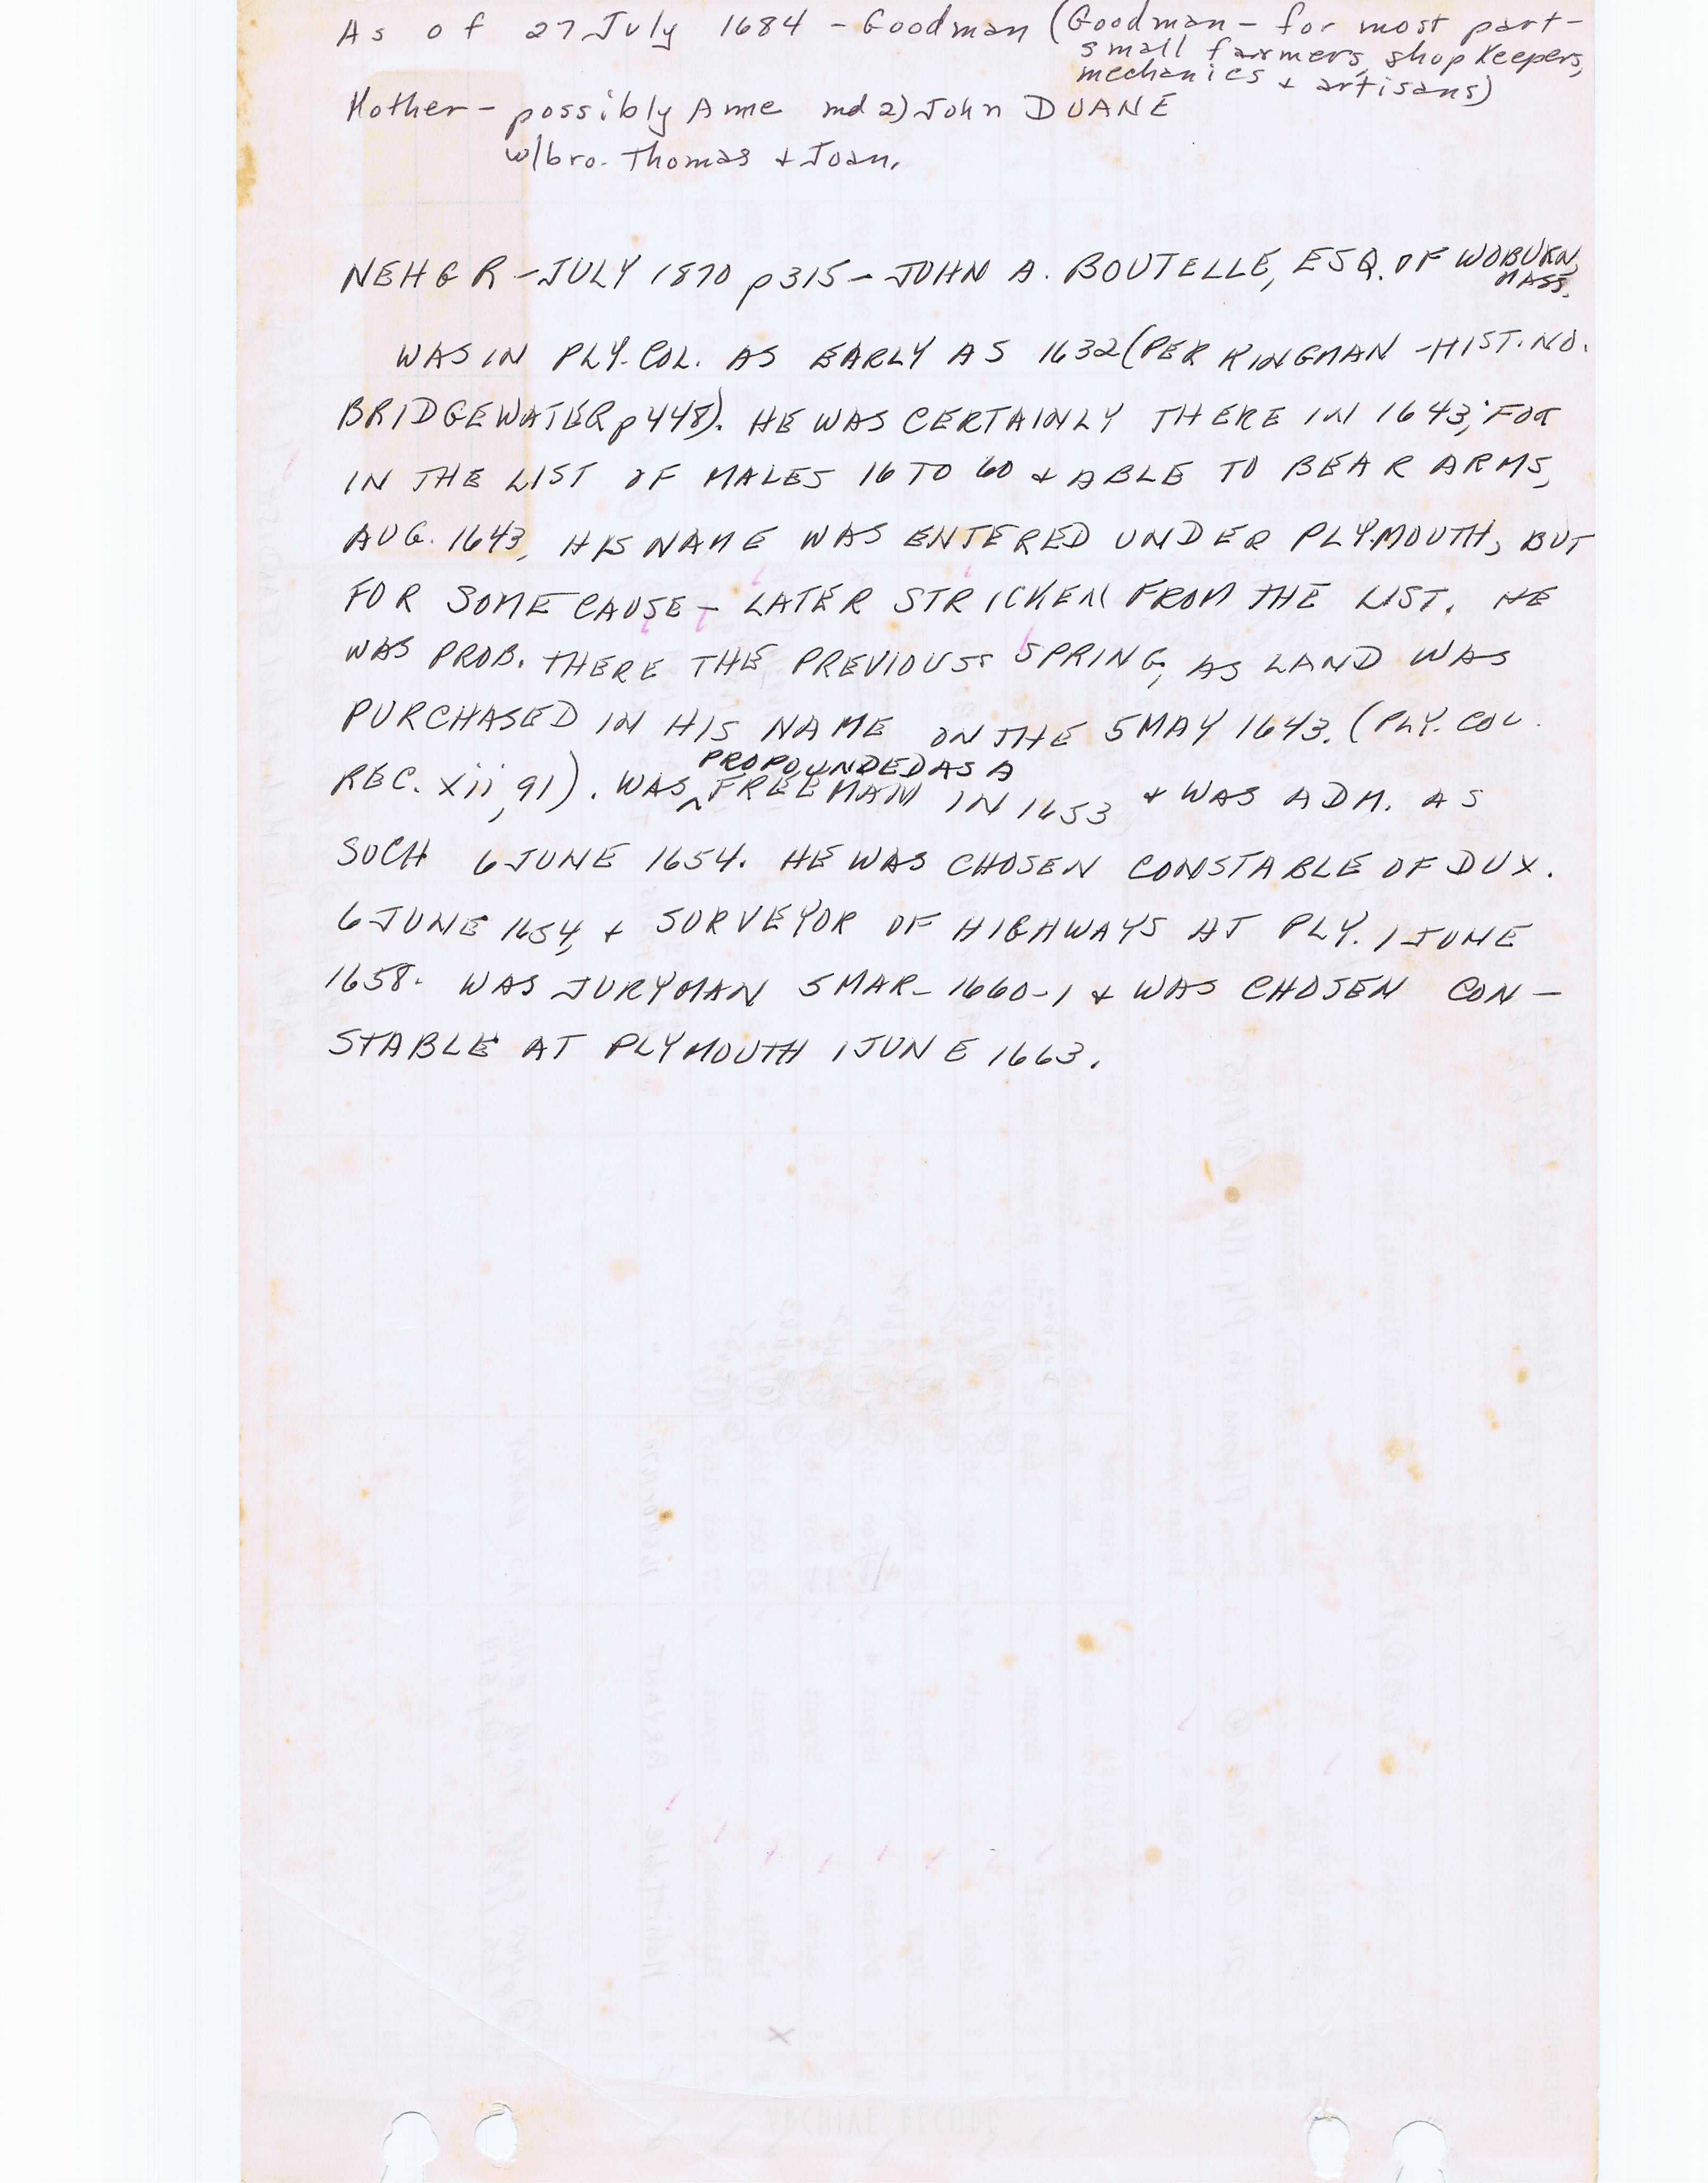 As of 27 July 1684 - Goodman (Goodman - for most part -
small farmers, shop keepers,
mechanics + artisans)
Mother - possibly Anne md 2) John DUANE
w/bro. Thomas + Joan.
NEHGR - JULY 1870 p315 - JOHN A. BOUTELLE, ESQ. OF WOBURN,
MASS.
WAS IN PLY. COL. AS EARLY AS 1632 (PER KINGMAN - HIST. NO.
BRIDGEWATER p448). HE WAS CERTAINLY THERE IN 1643; FOR
IN THE LIST OF MALES 16 TO 60 + ABLE TO BEAR ARMS,
AUG. 1643, HIS NAME WAS ENTERED UNDER PLYMOUTH, BUT
FOR SOME CAUSE - LATER STRICKEN FROM THE LIST. HE
WAS PROB. THERE THE PREVIOUS SPRING, AS LAND WAS
PURCHASED IN HIS NAME ON THE 5 MAY 1643. (PLY. COL.
PROPOUNDED AS A
REC. xii, 91). WAS ^ FREEMAN IN 1653 + WAS ADM. AS
SUCH 6 JUNE 1654. HE WAS CHOSEN CONSTABLE OF DUX.
6 JUNE 1654, + SURVEYOR OF HIGHWAYS AT PLY. 1 JUNE
1658. WAS JURYMAN 5 MAR - 1660-1 + WAS CHOSEN CON -
STABLE AT PLYMOUTH 1 JUNE 1663.